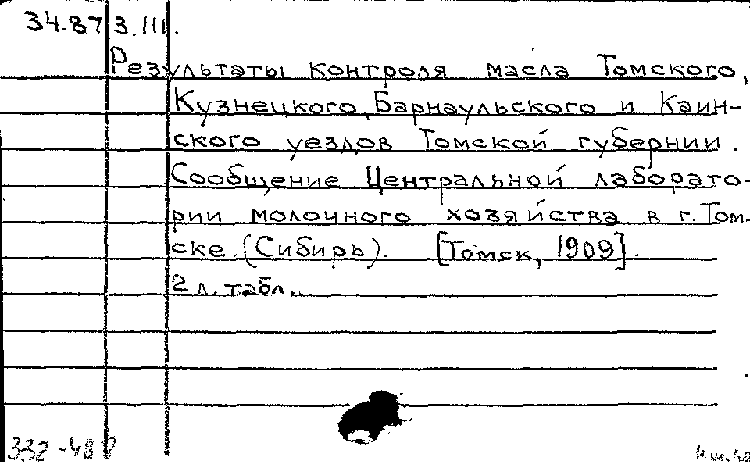 34.87 3.III.
Результаты контроля масла Томского,
Кузнецкого, Барнаульского и Каин-
ского уездов Томской губернии.
Сообщение Центральной лаборато-
рии молочного хозяйства в г. Том-
ске (Сибирь). [Томск, 1909]
2 л. табл.
332-48